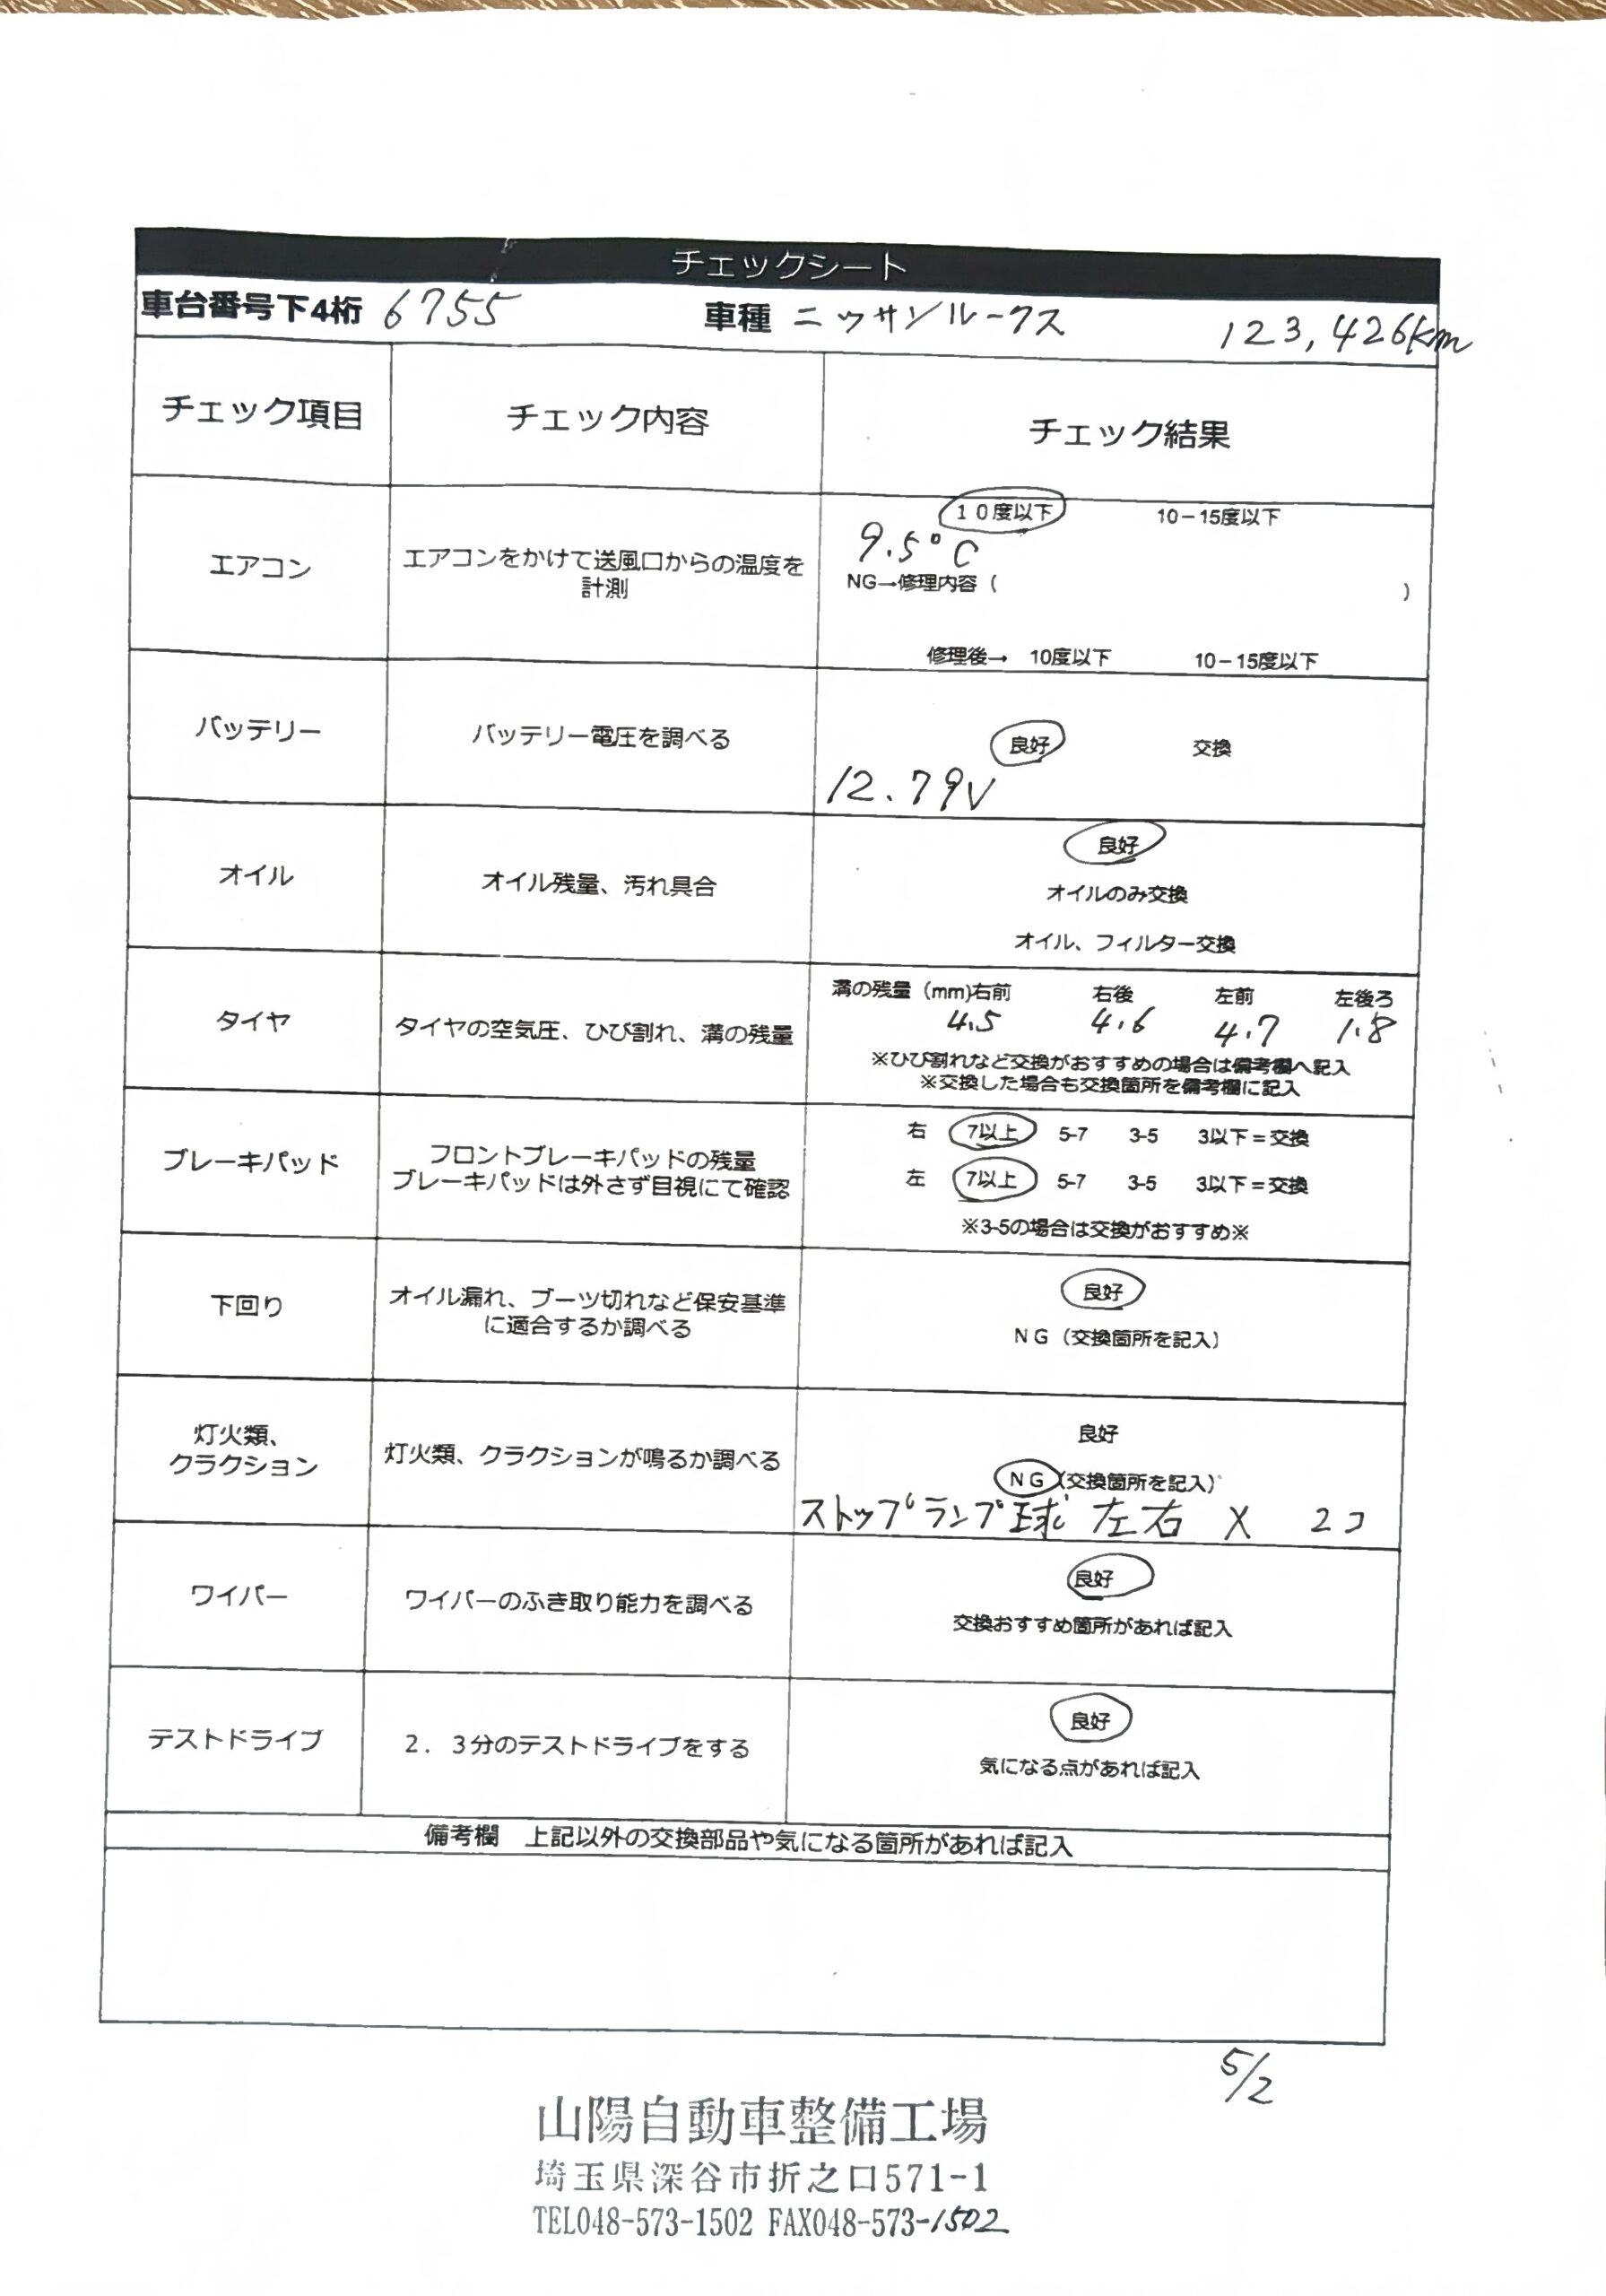 チェックシート
車台番号下4桁 6755 車種 ニッサンルークス 123,426km
チェック項目 チェック内容 チェック結果
エアコン
エアコンをかけて送風口からの温度を
計測
10度以下 10-15度以下
9.5°C
NG→修理内容( )
修理後→ 10度以下 10-15度以下
バッテリー
バッテリー電圧を調べる
良好 交換
12.79V
オイル
オイル残量、汚れ具合
良好
オイルのみ交換
オイル、フィルター交換
タイヤ
タイヤの空気圧、ひび割れ、溝の残量
溝の残量(mm)右前 右後 左前 左後ろ
4.5 4.6 4.7 1.8
※ひび割れなど交換がおすすめの場合は備考欄へ記入
※交換した場合も交換箇所を備考欄に記入
ブレーキパッド
フロントブレーキパッドの残量
ブレーキパッドは外さず目視にて確認
右 7以上 5-7 3-5 3以下=交換
左 7以上 5-7 3-5 3以下=交換
※3-5の場合は交換がおすすめ※
下回り
オイル漏れ、ブーツ切れなど保安基準
に適合するか調べる
良好
NG(交換箇所を記入)
灯火類、
クラクション
灯火類、クラクションが鳴るか調べる
良好
NG(交換箇所を記入)
ストップランプ球 左右 X 2コ
ワイパー
ワイパーのふき取り能力を調べる
良好
交換おすすめ箇所があれば記入
テストドライブ
2.3分のテストドライブをする
良好
気になる点があれば記入
備考欄 上記以外の交換部品や気になる箇所があれば記入
5/2
山陽自動車整備工場
埼玉県深谷市折之口571-1
TEL048-573-1502 FAX048-573-1502